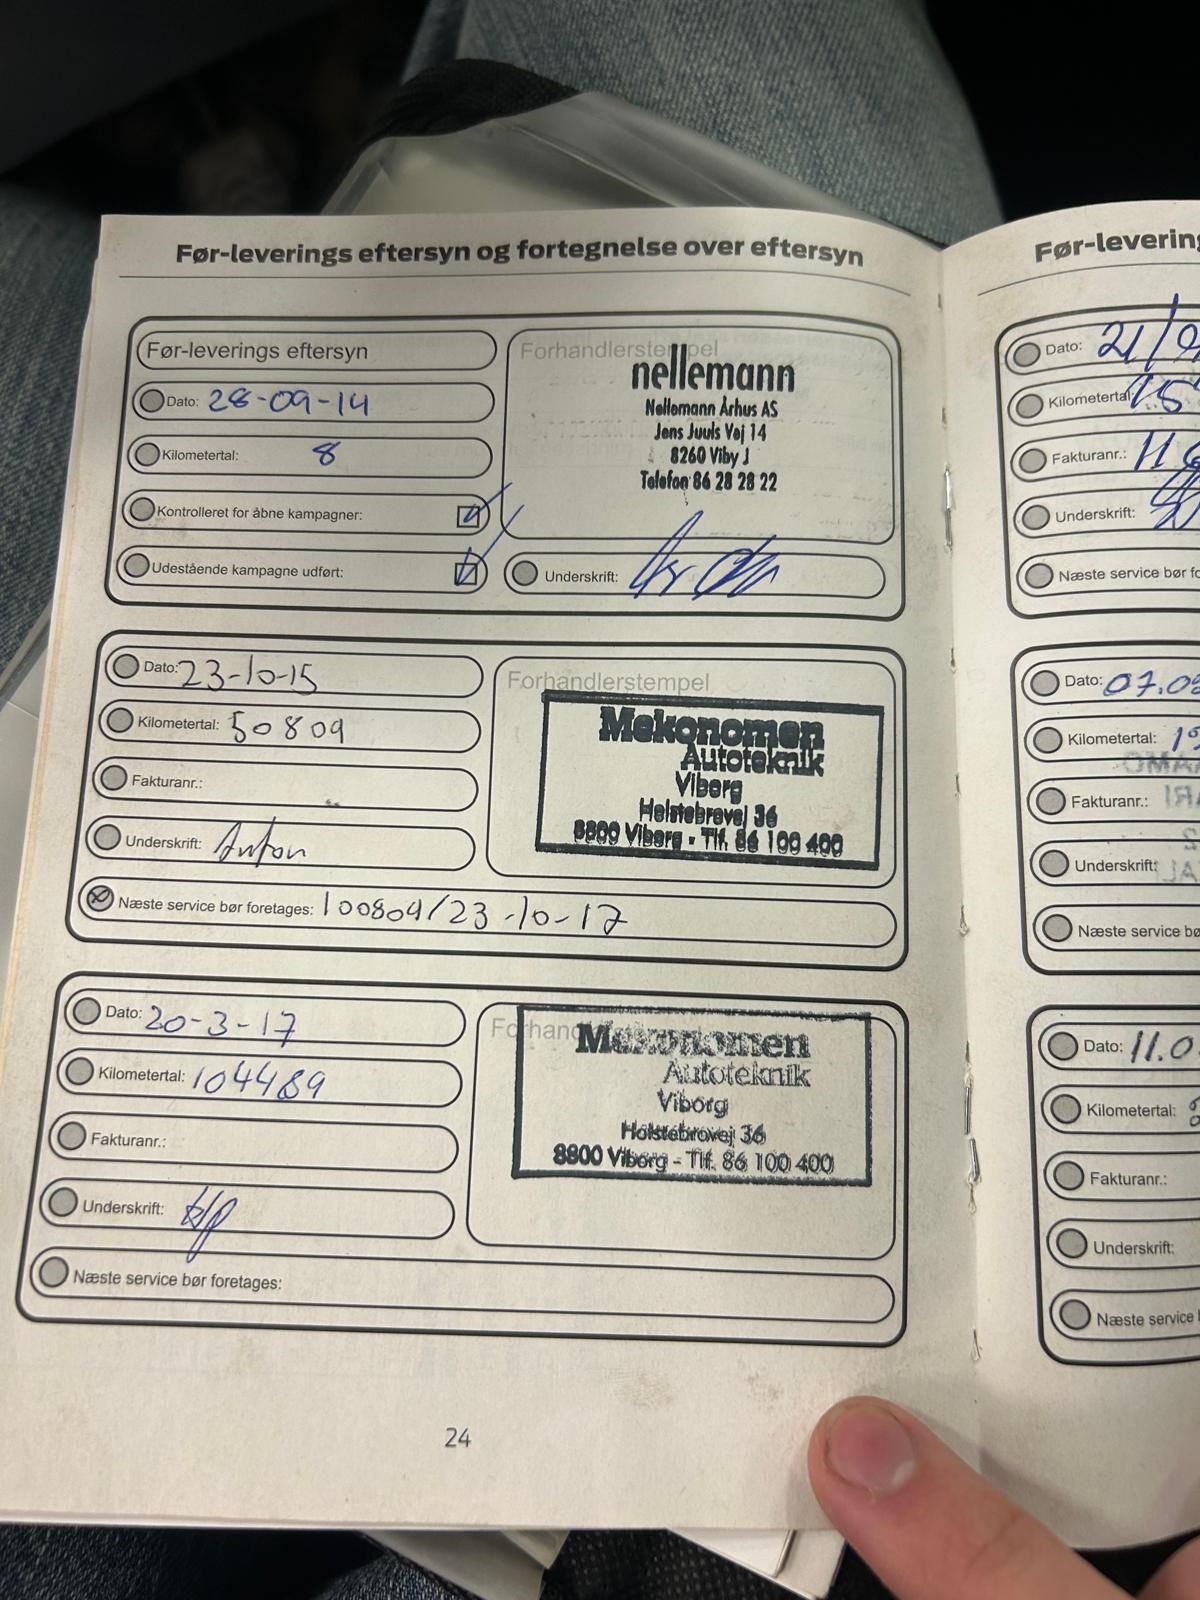 Før-leverings eftersyn og fortegnelse over eftersyn
Før-leverings eftersyn
Dato: 28-09-14
Kilometertal: 8
Kontrolleret for åbne kampagner:
Udestående kampagne udført:
Forhandlerstempel
nellemann
Nellemann Århus AS
Jens Juuls Vej 14
8260 Viby J
Telefon 86 28 28 22
Underskrift:
Dato: 23-10-15
Kilometertal: 50809
Fakturanr.:
Underskrift: Anton
Næste service bør foretages: 100809/23-10-17
Forhandlerstempel
Mekonomen
Autoteknik
Viborg
Holstebrovej 36
8800 Viborg - Tlf. 86 100 400
Dato: 20-3-17
Kilometertal: 104489
Fakturanr.:
Underskrift:
Næste service bør foretages:
Mekonomen
Autoteknik
Viborg
Holstebrovej 36
8800 Viborg - Tlf. 86 100 400
24
Før-levering
Dato: 21/
Kilometertal:
Fakturanr.: 11
Underskrift:
Næste service bør fo
Dato: 07.0
Kilometertal: 1
Fakturanr.:
Underskrift:
Næste service bø
Dato: 11.0
Kilometertal:
Fakturanr.:
Underskrift:
Næste service